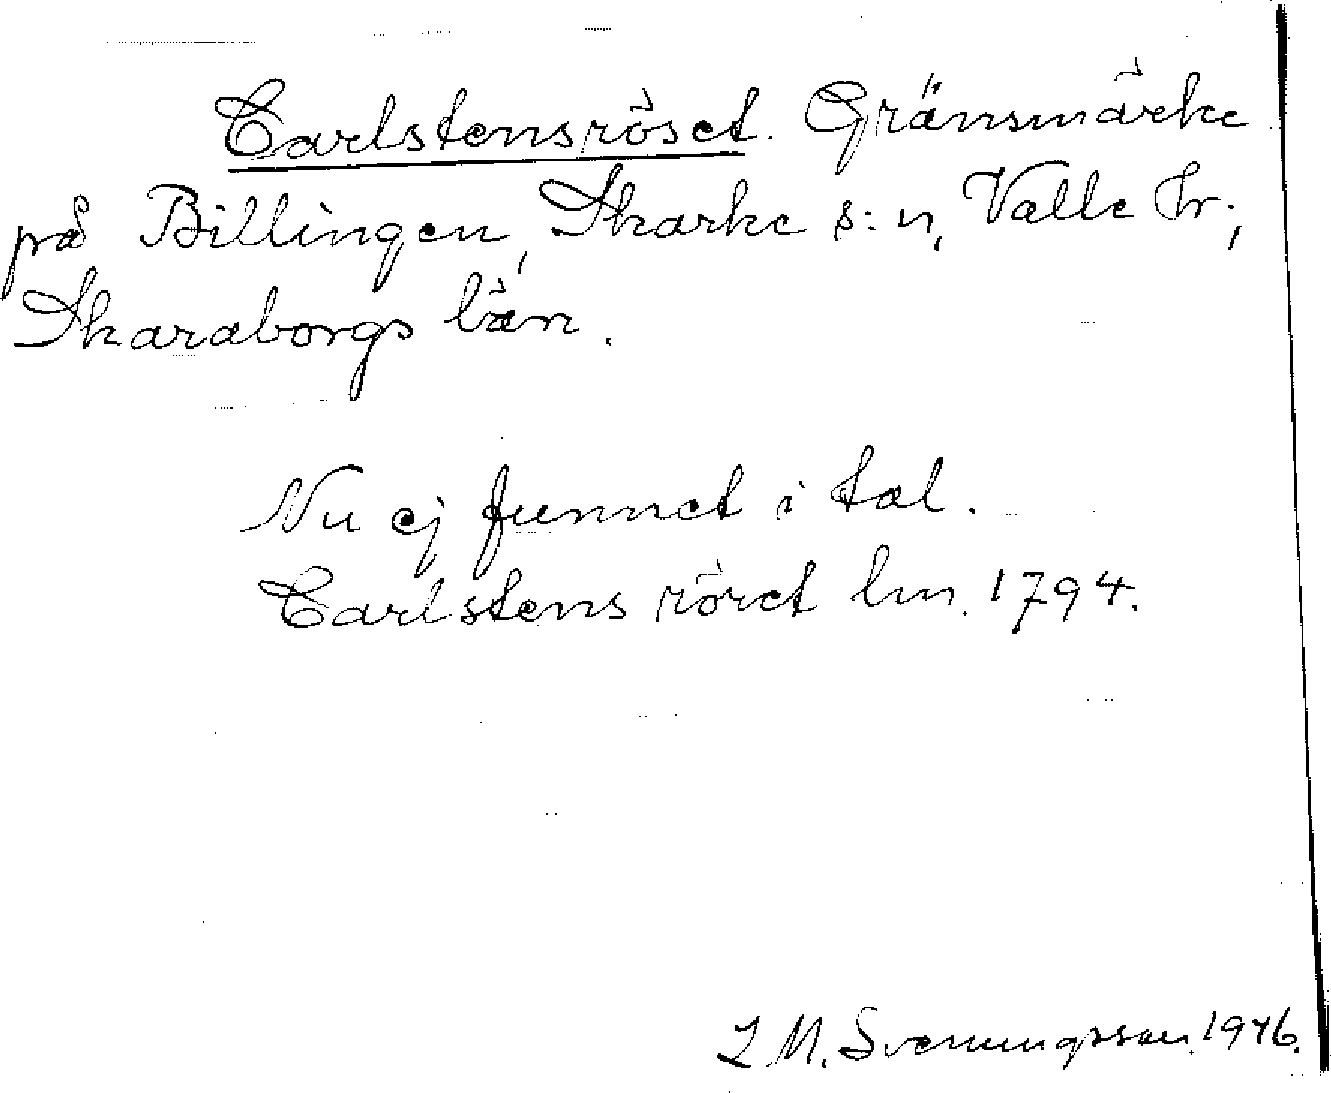 Carlstensröset. Gränsmärke
på Billingen, Skarke s:n, Valle hr;
Skaraborgs län.
Nu ej funnet i tal.
Carlstens röret lm. 1794.
L M. Svenungsson. 1946.